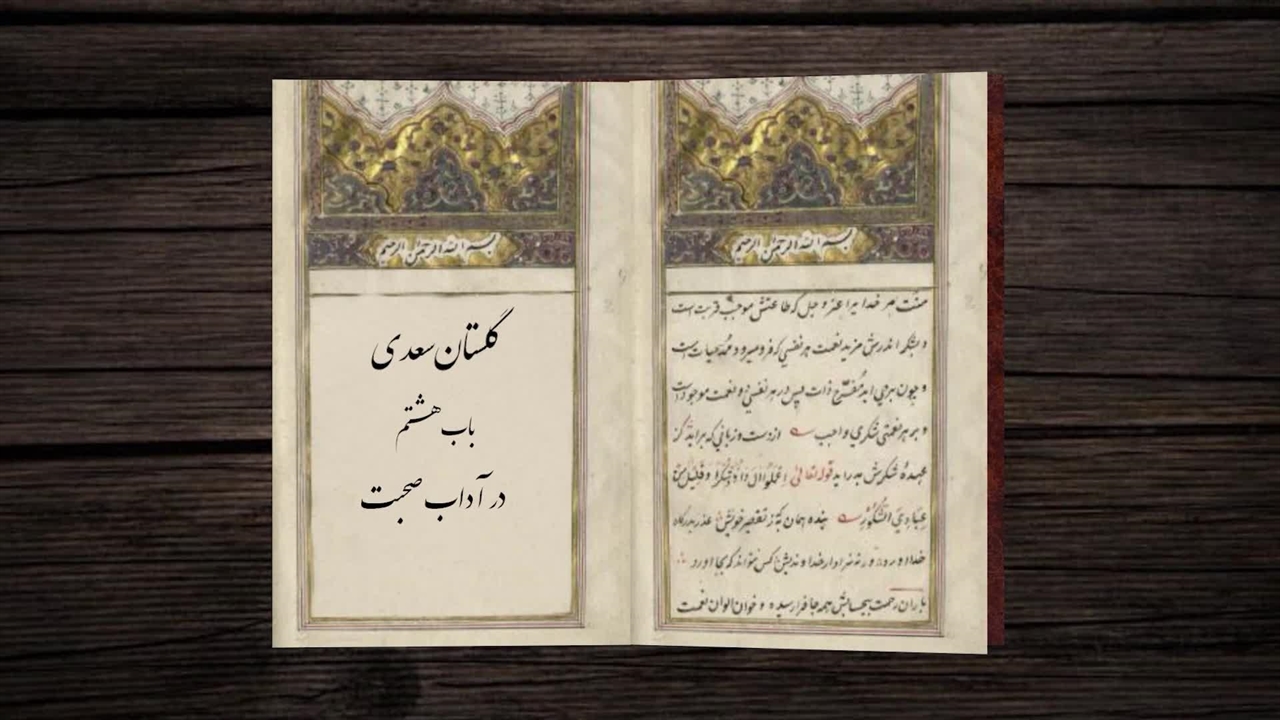 بسم الله الرحمن الرحیم
منت مر خدایرا عز و جل که طاعتش موجب قربت است
و بشکر اندرش مزید نعمت هر نفسی که فرو میرود ممد حیات است
و چون برمی اید مُفَرّح ذات پس در هر نفسی دو نعمت موجود است
و بر هر نعمتی شکری واجب از دست و زبانی که براید کز
عهدهٔ شکرش بدر اید قوله تعالی اعملوا ال داود شکرا و قلیل من
عبادی الشکور بنده همان به که ز تقصیر خویش عذر بدرگاه
خدا اورد ورنه سزاوار خداوندیش کس نتواند که بجا اورد
باران رحمت بیحسابش همه جا فرا رسیده و خوان الوان نعمت
بسم الله الرحمن الرحیم
گلستان سعدی
باب هشتم
در آداب صحبت